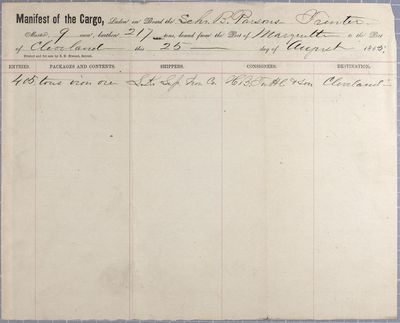 Manifest of the Cargo, Laden on Board the Schr B. Parsons
Mast'd 9 men, burthen 217 tons, bound from the Port of Marquette to the Port
of Cleveland this 25 day of August
ENTRIES. PACKAGES AND CONTENTS. SHIPPERS. CONSIGNEES. DESTINATION.
405 tons iron ore L. Sup Iron Co H.B. Tuttle & Son Cleveland